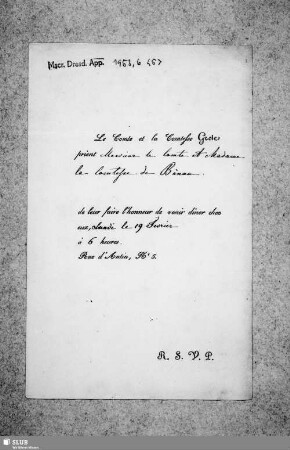 Mscr. Dresd. App. 1953, 6 467
Le Comte et la Comtesse
prient Monsieur le comte et Madame
la comtesse de Bünau
de leur faire l'honneur de venir dîner chez
eux, Lundi le 19 Fevrier
à 6 heures.
Rue d'Antin, No 5.
R. S. V. P.
SLUB
Wir führen Wissen.